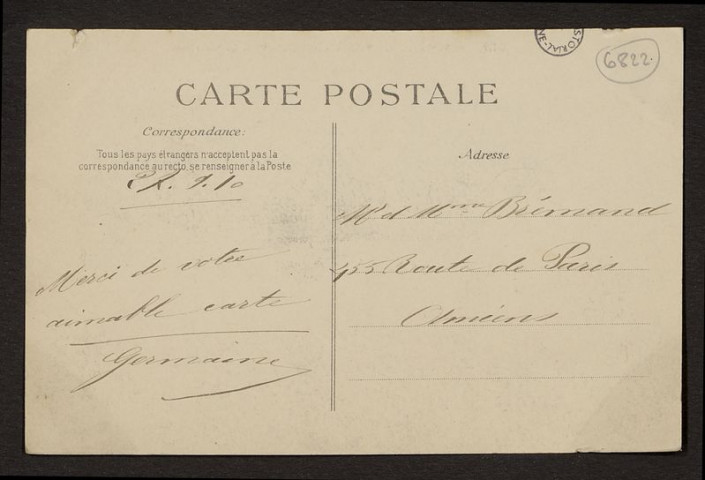 6822.
CARTE POSTALE
Correspondance:
Tous les pays étrangers n'acceptent pas la
correspondance au recto, se renseigner à la Poste
Adresse
9.10
Mr et Mme Brémand
Route de Paris
Amiens
Merci de votre
aimable carte
Germaine